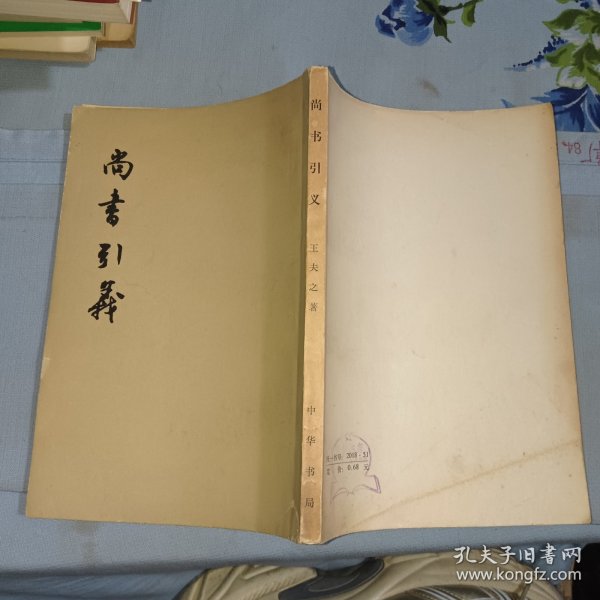 尚書引義
尚书引义
王夫之著
中华书局
统一书号：2018·51
定价：0.68元
孔夫子旧书网
www.kongfz.com